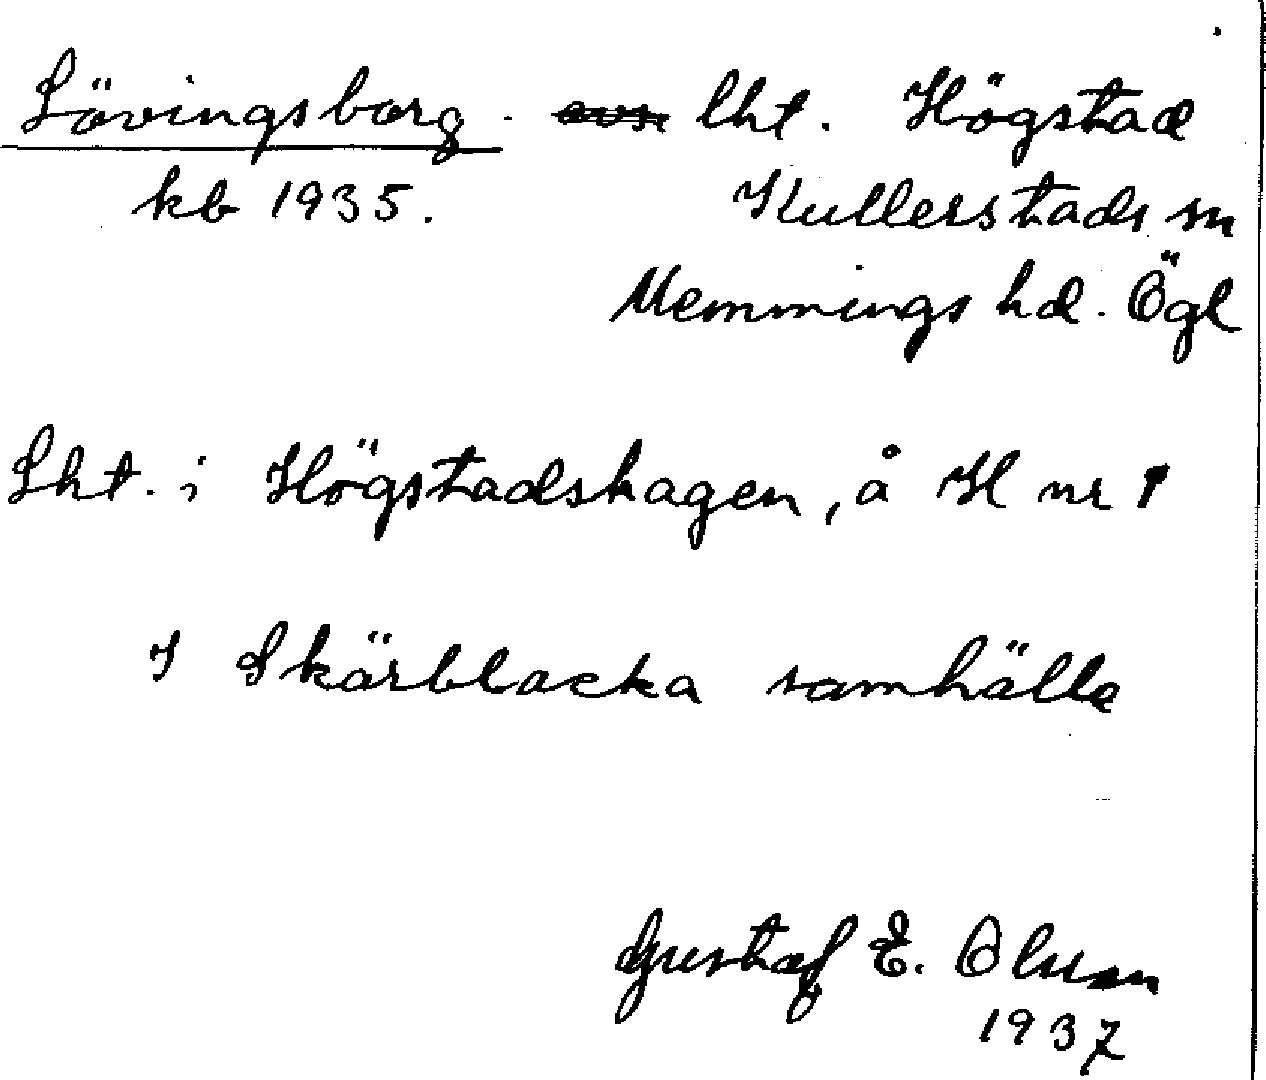 Lövingsborg. lht. Högstad
kb 1935. Kullerstads sn
Memmings hd. Ögl
Lht. i Högstadshagen, å H nr 1
I Skärblacka samhälle
Gustaf E. Olsson
1937